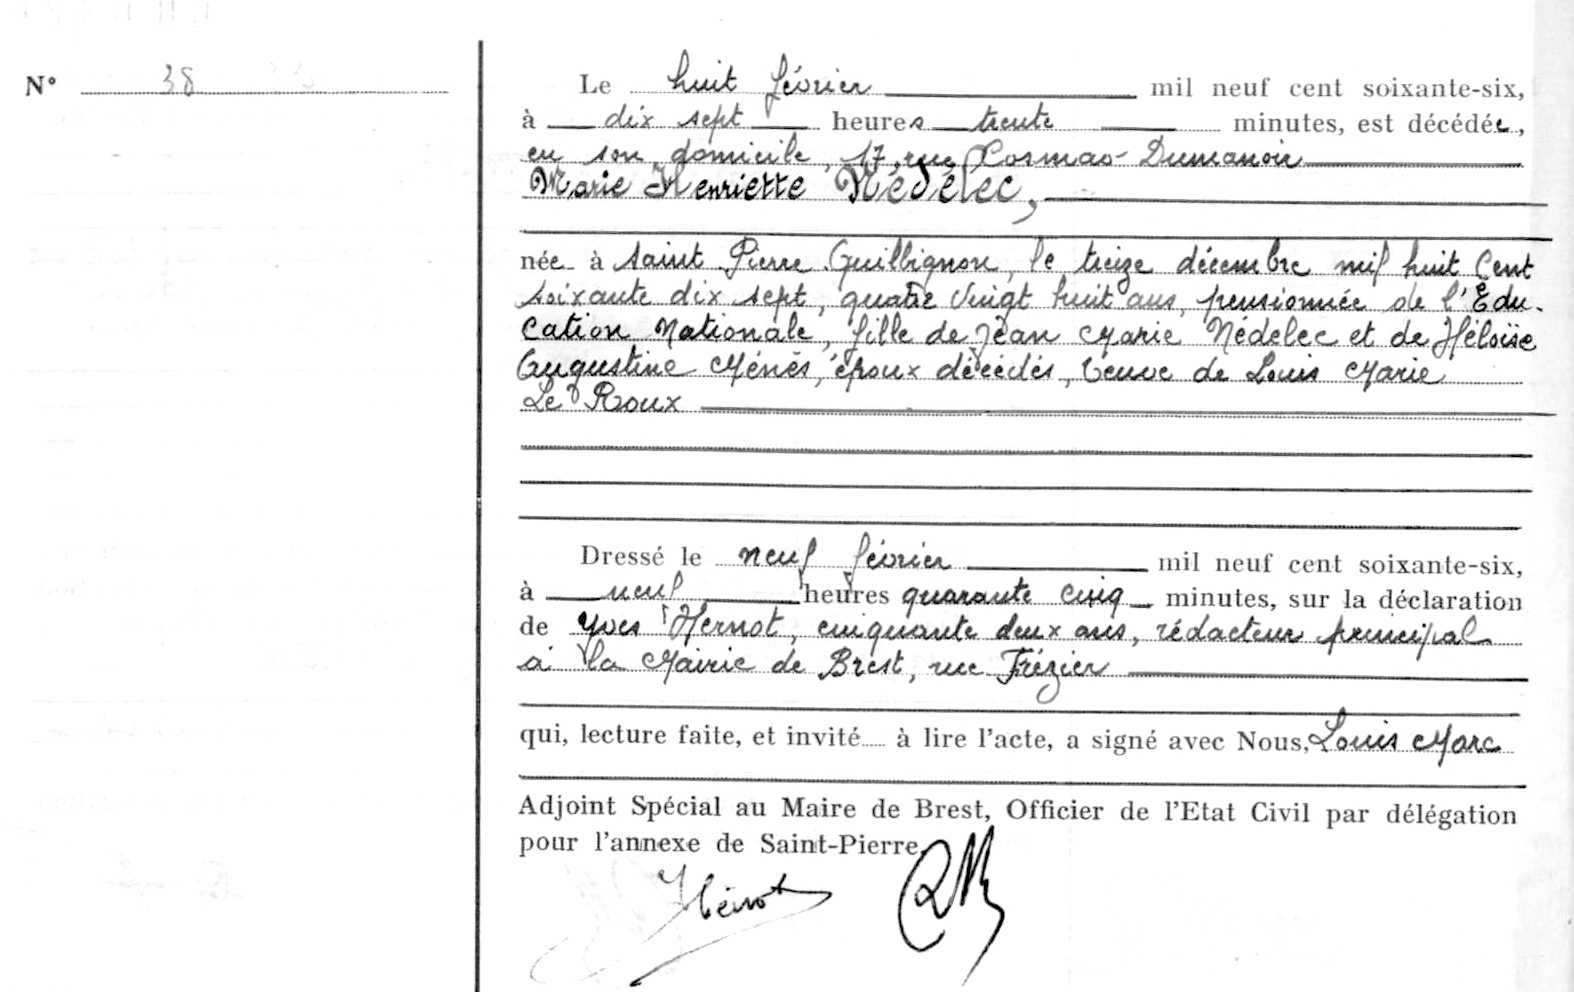 N° 38
Le huit février mil neuf cent soixante-six,
à dix sept heures trente minutes, est décédée,
en son domicile, 17, rue Cosmao-Dumanoir
Marie Henriette Nédélec,
née à Saint Pierre Quilbignon, le treize décembre mil huit Cent
soixante dix sept, quatre vingt huit ans, pensionnée de l'Edu-
cation Nationale, fille de Jean Marie Nédelec et de Héloïse
Augustine Ménès, époux décédés, Veuve de Louis Marie
Le Roux
Dressé le neuf février mil neuf cent soixante-six,
à neuf heures quarante cinq minutes, sur la déclaration
de Yves Hernot, cinquante deux ans, rédacteur principal
à la Mairie de Brest, rue Frézier
qui, lecture faite, et invité à lire l'acte, a signé avec Nous, Louis Marc
Adjoint Spécial au Maire de Brest, Officier de l'Etat Civil par délégation
pour l'annexe de Saint-Pierre.